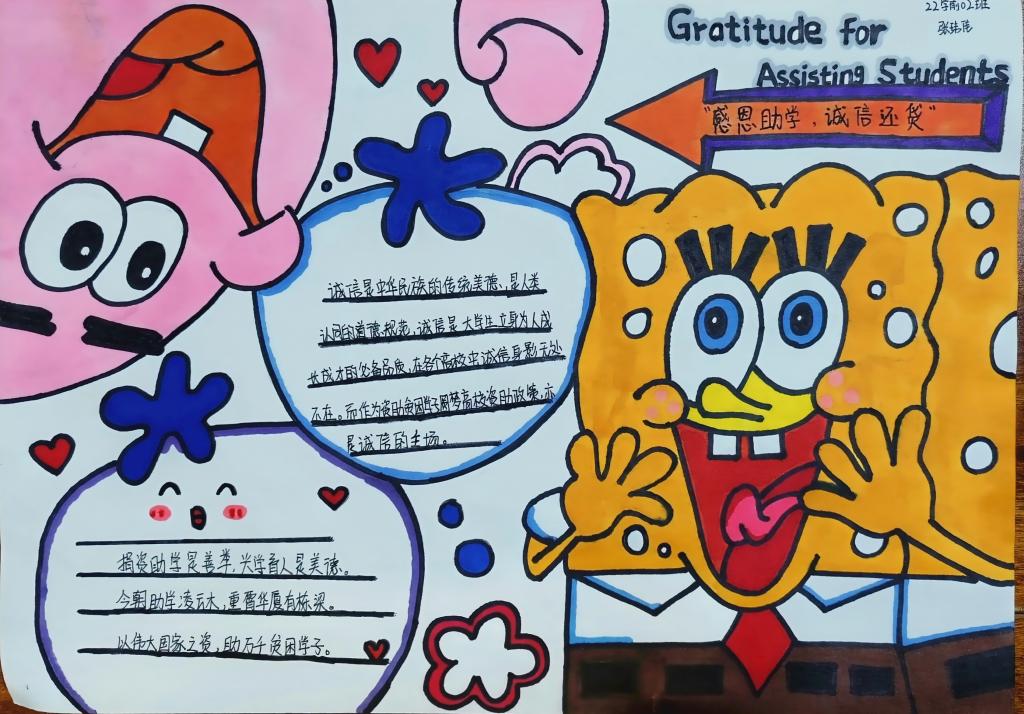 22学前02班
张玮倩
Gratitude for
Assisting Students
"感恩助学，诚信还贷"
诚信是中华民族的传统美德，是人类
认同的道德规范，诚信是大学生立身为人成
长成才的必备品质，在各个高校中诚信身影无处
不在。而作为资助贫困学子圆梦高校资助政策，亦
是诚信的主场。
捐资助学是善举，兴学育人是美德。
今朝助学凌云木，重霄华厦有栋梁。
以伟大国家之资，助万千贫困学子。